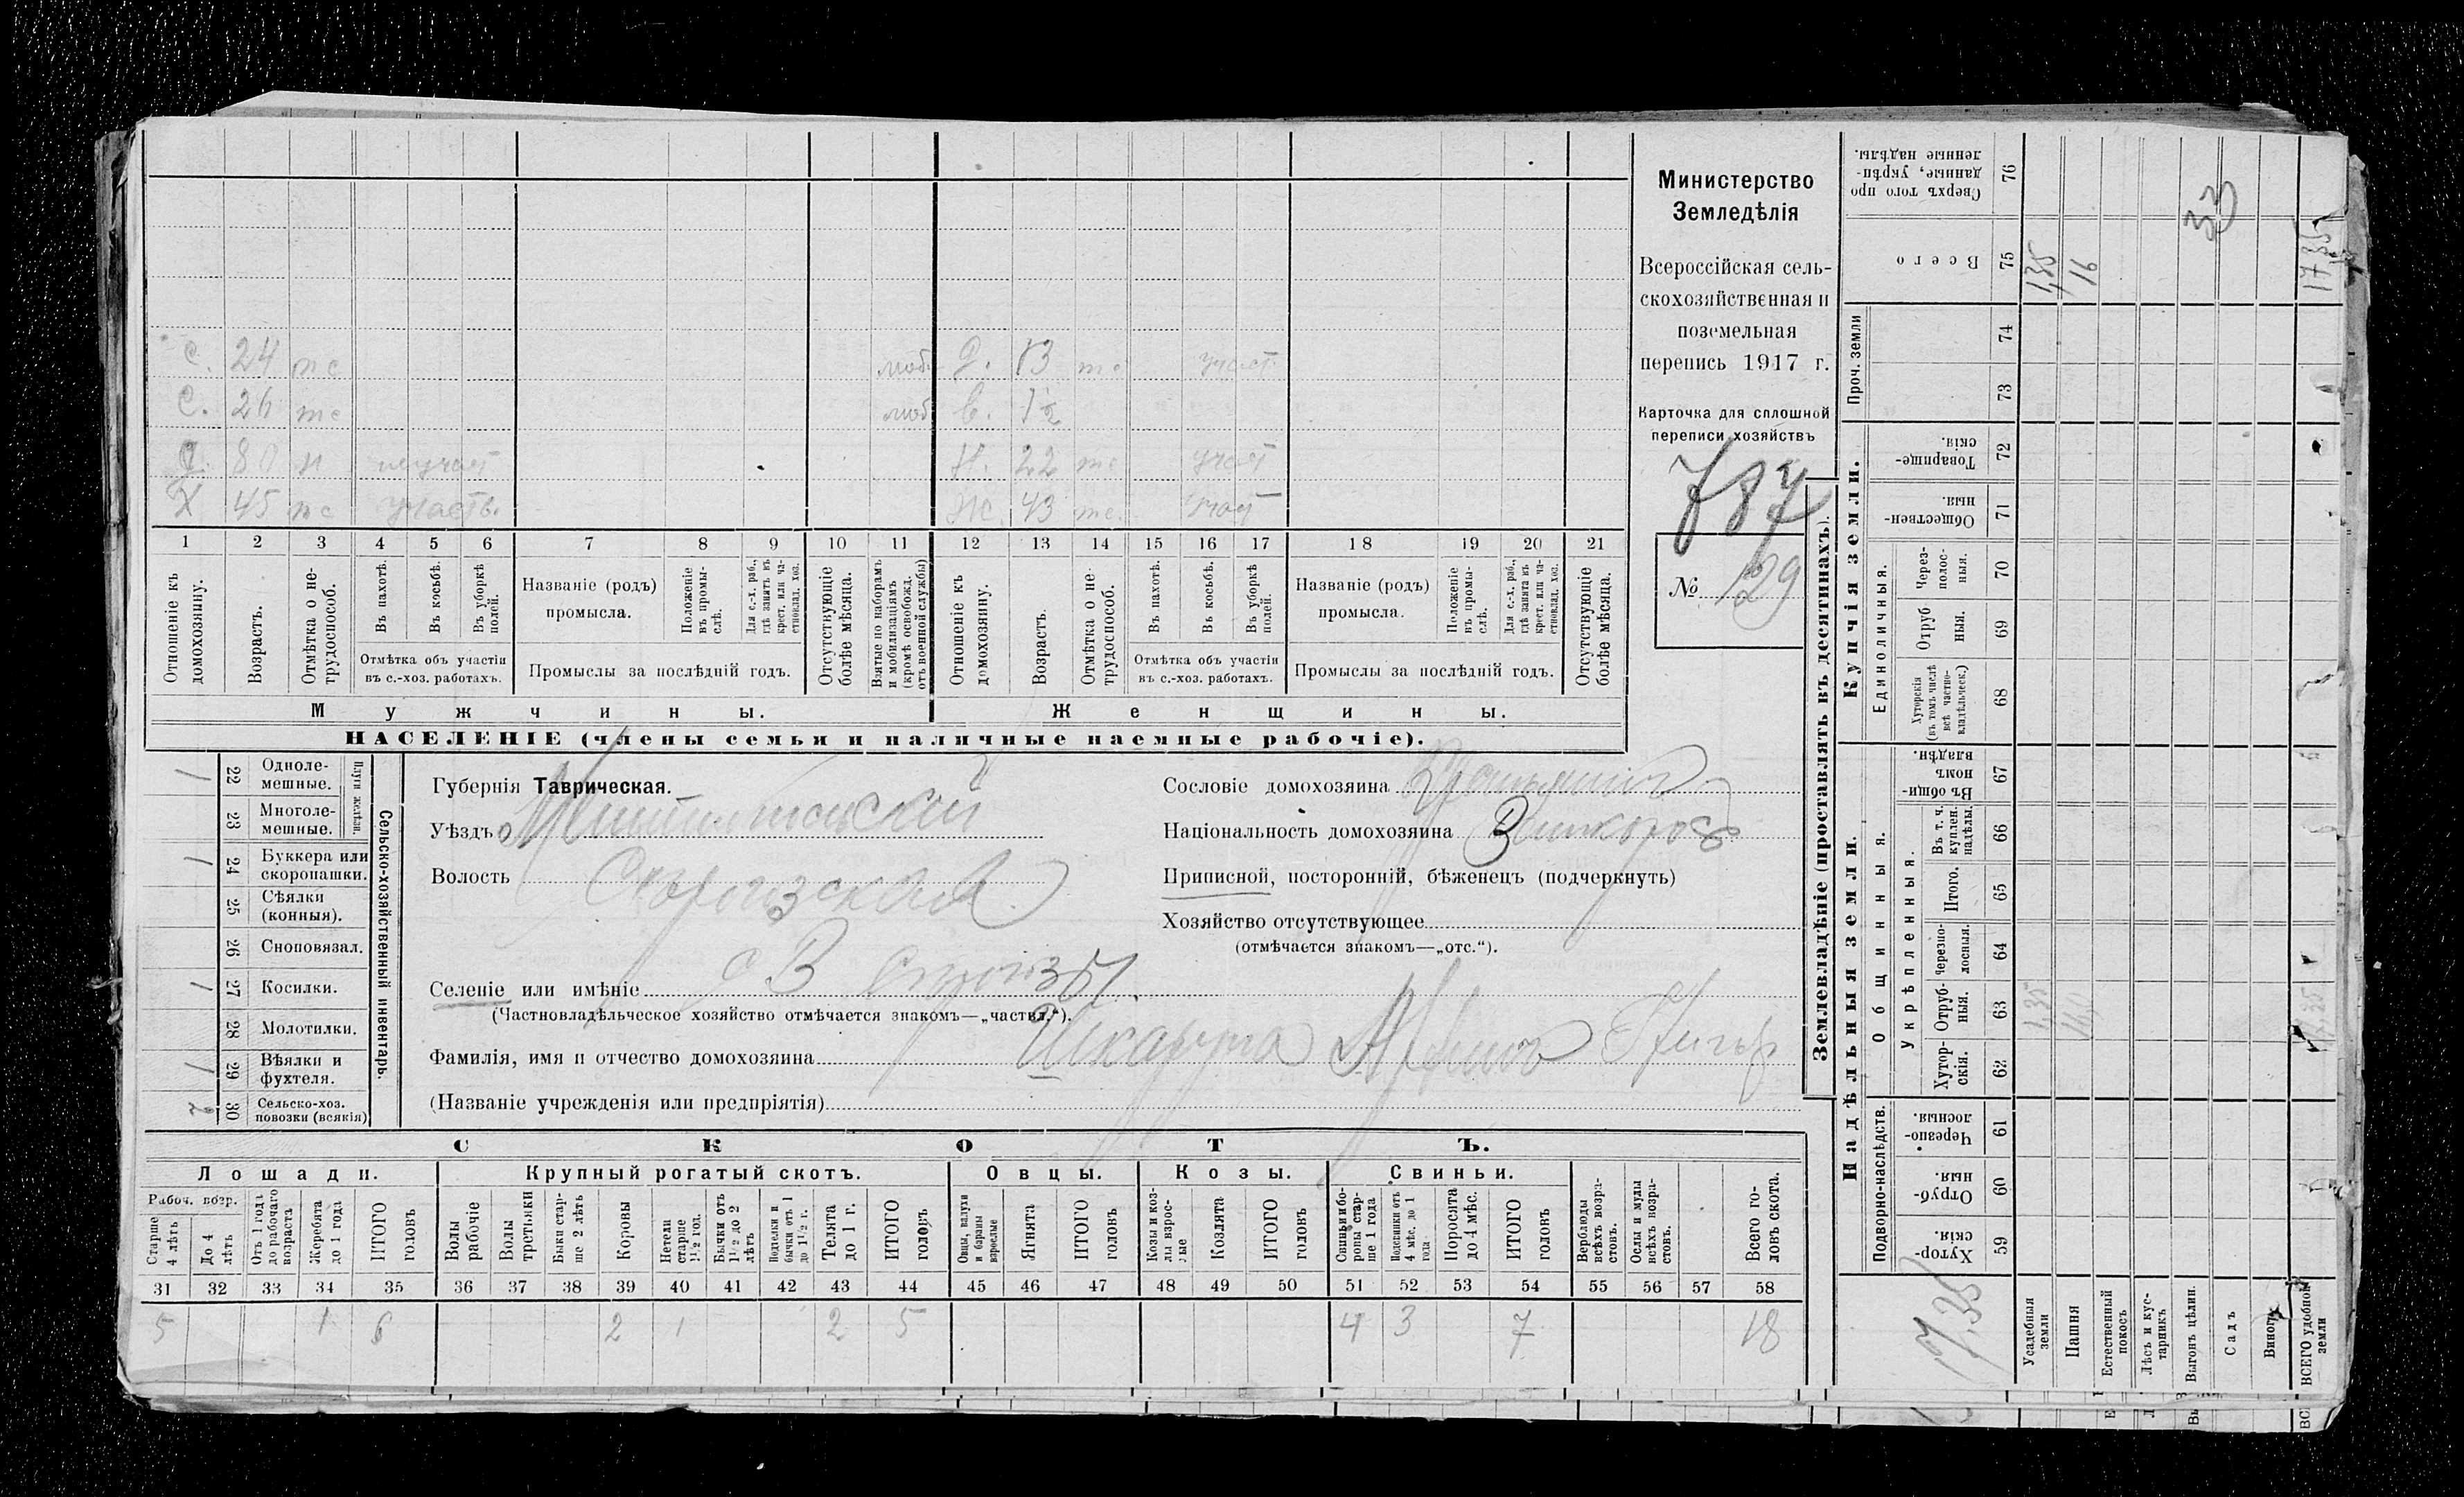 Министерство
Земледѣлія
Всероссійская сель-
скохозяйственная и
поземельная
перепись 1917 г.
Карточка для сплошной
переписи хозяйствъ
787
№ 129
с. 24 тс моб. д. 13 тс участ.
с. 26 тс моб в. 1½
80 н неучаст Н. 22 тс участ
Х 45 тс участв. Ж. 43 тс. участ
1 2 3 4 5 6 7 8 9 10 11 12 13 14 15 16 17 18 19 20 21
Отношеніе къ домохозяину.
Возрастъ.
Отмѣтка о не-трудоспособ.
Въ пахотѣ.
Въ косьбѣ.
Въ уборкѣ полей.
Отмѣтка объ участіи въ с.-хоз. работахъ.
Названіе (родъ) промысла.
Положеніе въ промы-слѣ.
Для с.-х. раб., гдѣ занятъ въ крест. или ча-стновлад. хоз.
Промыслы за послѣдній годъ.
Отсутствующіе болѣе мѣсяца.
Взятые по наборамъ и мобилизаціямъ (кромѣ освобожд. отъ военной службы)
Отношеніе къ домохозяину.
Возрастъ.
Отмѣтка о не-трудоспособ.
Въ пахотѣ.
Въ косьбѣ.
Въ уборкѣ полей.
Отмѣтка объ участіи въ с.-хоз. работахъ.
Названіе (родъ) промысла.
Положеніе въ промы-слѣ.
Для с.-х. раб., гдѣ занята въ крест. или ча-стновлад. хоз.
Промыслы за послѣдній годъ.
Отсутствующіе болѣе мѣсяца.
Мужчины. Женщины.
НАСЕЛЕНІЕ (члены семьи и наличные наемные рабочіе).
Сельско-хозяйственный инвентарь.
Плуги желѣзн.
22 Одноле-мешные. 1
23 Многоле-мешные.
24 Буккера или скоропашки. 1
25 Сѣялки (конныя).
26 Сноповязал.
27 Косилки. 1
28 Молотилки.
29 Вѣялки и фухтеля. 1
30 Сельско-хоз. повозки (всякія)
Губернія Таврическая.
Уѣздъ Мелитопольскій
Волость
Селеніе или имѣніе
(Частновладѣльческое хозяйство отмѣчается знакомъ—„частвл.“).
Фамилія, имя и отчество домохозяина
(Названіе учрежденія или предпріятія)
Сословіе домохозяина
Національность домохозяина
Приписной, посторонній, бѣженецъ (подчеркнуть)
Хозяйство отсутствующее
(отмѣчается знакомъ—„отс.“).
СКОТЪ.
Лошади. Крупный рогатый скотъ. Овцы. Козы. Свиньи.
Рабоч. возр.
Старше 4 лѣтъ
До 4 лѣтъ
Отъ 1 года до рабочаго возраста
Жеребята до 1 года
ИТОГО головъ
Волы рабочіе
Волы третьяки
Быки стар-ше 2 лѣтъ
Коровы
Нетели старше 1½ год.
Бычки отъ 1½ до 2 лѣтъ
Подтелки и бычки отъ 1 до 1½ г.
Телята до 1 г.
ИТОГО головъ
Овцы, валухи и бараны взрослые
Ягнята
ИТОГО головъ
Козы и коз-лы взрос-лые
Козлята
ИТОГО головъ
Свиньи и бо-ровы стар-ше 1 года
Подсвинки отъ 4 мѣс. до 1 года
Поросята до 4 мѣс.
ИТОГО головъ
Верблюды всѣхъ возра-стовъ.
Ослы и мулы всѣхъ возра-стовъ.
Всего го-ловъ скота.
31 32 33 34 35 36 37 38 39 40 41 42 43 44 45 46 47 48 49 50 51 52 53 54 55 56 57 58
5 1 6 2 1 2 5 4 3 7 18
Землевладѣніе (проставлять въ десятинахъ).
Надѣльныя земли. Купчія земли. Проч. земли
Подворно-наслѣдств.
Общинныя.
Укрѣпленныя.
Единоличныя.
59 Хутор-скія.
60 Отруб-ныя.
61 Черезпо-лосныя.
62 Хутор-скія.
63 Отруб-ныя.
64 Черезпо-лосныя.
65 Итого.
66 Въ т. ч. куплен. надѣлы.
67 Въ общи-номъ владѣн.
68 Хуторскія (въ томъ числѣ всѣ частно-владѣльческ.)
69 Отруб ныя.
70 Через-полос-ныя.
71 Обществен-ныя.
72 Товарище-скія.
73
74
75 Всего
76 Сверхъ того про данные, укрѣп-ленные надѣлы.
Усадебныя земли 1,35 1,35
Пашня 16,0 16
Естественный покосъ
Лѣсъ и кус-тарникъ
Выгонъ цѣлин.
Садъ
ВСЕГО удобной земли 17,35 17,35
17,35
33